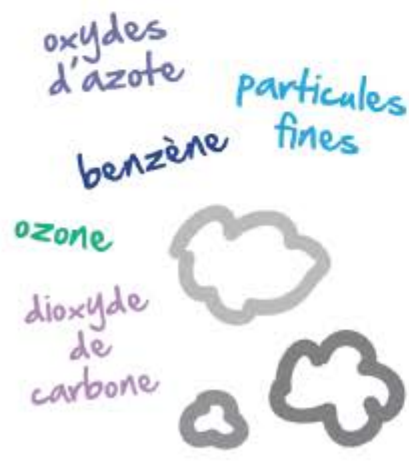 oxydes
d'azote
particules
fines
benzène
ozone
dioxyde
de
carbone